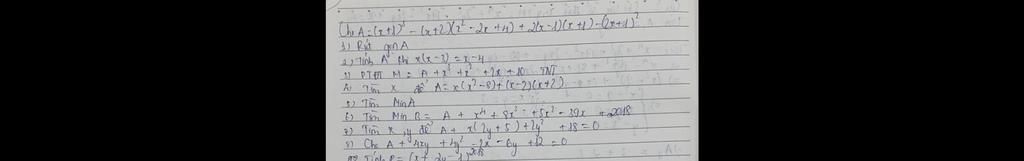 Cho A = (x+1)³ - (x+2)(x² - 2x + 4) + 2(x-1)(x+1) - (2x+1)²
1) Rút gọn A
2) Tính A khi x(x-3) = x-4
3) PTĐT M = A + x³ + x² + 2x + 10 TNT
4) Tìm x để A = x(x²-8) + (x-2)(x+2)
5) Tìm Min A
6) Tìm Min B = A + x⁴ + 8x³ + 5x² - 39x + 2018
7) Tìm x, y để A + x(2y+5) + 2y² + 18 = 0
8) Cho A + 4xy + 4y² - 2x - 6y + 12 = 0
Tính P = (x + 2y - 1)²⁰¹⁸